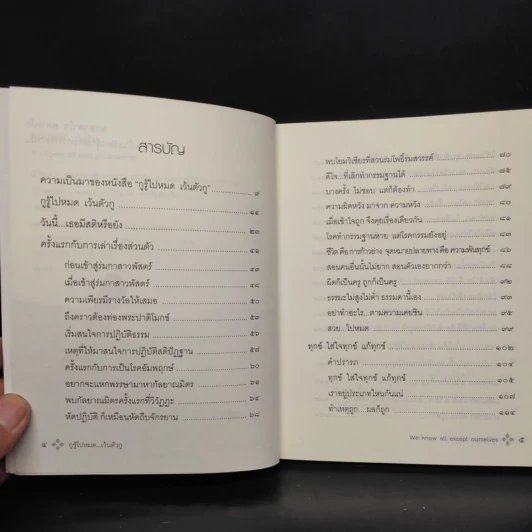 สารบัญ
ความเป็นมาของหนังสือ "กูรู้ไปหมด เว้นตัวกู" ๙
กูรู้ไปหมด เว้นตัวกู ๑๔
วันนี้...เธอมีสติหรือยัง ๒๗
ครั้งแรกกับการเล่าเรื่องส่วนตัว ๔๑
ก่อนเข้าสู่ร่มกาสาวพัสตร์ ๔๓
เมื่อเข้าสู่ร่มกาสาวพัสตร์ ๔๘
ความเพียรมีรางวัลให้เสมอ ๕๐
ถึงคราวต้องท่องพระปาติโมกข์ ๕๓
เริ่มสนใจการปฏิบัติธรรม ๕๖
เหตุที่ให้มาสนใจการปฏิบัติสติปัฏฐาน ๕๘
ครั้งแรกกับการเป็นโรคอัมพฤกษ์ ๖๐
อยากจะแหกพรรษามาหากัลยาณมิตร ๖๑
พบกัลยาณมิตรครั้งแรกที่วิวัฏฏะ ๖๔
หัดปฏิบัติ ก็เหมือนหัดถีบจักรยาน ๖๘
๔ กูรู้ไปหมด...เว้นตัวกู
พบโยมวิเชียรที่สวนร่มโพธิ์ร่มสวรรค์ ๘๐
ดีใจ...ที่เลิกทำกรรมฐานได้ ๘๕
บางครั้ง ไม่ชอบ แต่ก็ต้องทำ
ความผิดหวัง มาจาก ความหวัง
เมื่อเข้าใจถูก จึงคุยเรื่องเดียวกัน
โรคทำกรรมฐานหาย แต่โรคกรรมยังอยู่
ชีวิต คือ การก้าวย่าง จุดหมายปลายทาง คือ ความพ้นทุกข์ ๘๖
สอนคนอื่นนั้นไม่ยาก สอนตัวเองยากกว่า ๘๘
ผิดก็เป็นครู ถูกก็เป็นครู ๙๒
ธรรมะ ไม่สูงไม่ต่ำ ธรรมดานี้เอง
อย่าทำอะไร...ตามความเคยชิน
สวย...ไปหมด ๙๙
ทุกข์ ใส่ใจทุกข์ แก้ทุกข์ ๑๐๒
คำปรารภ
ทุกข์ ใส่ใจทุกข์ แก้ทุกข์
เราอยู่ประเภทไหนกันแน่
ทำเหตุถูก...ผลก็ถูก ๑๑๔
We know all except ourselves ๕